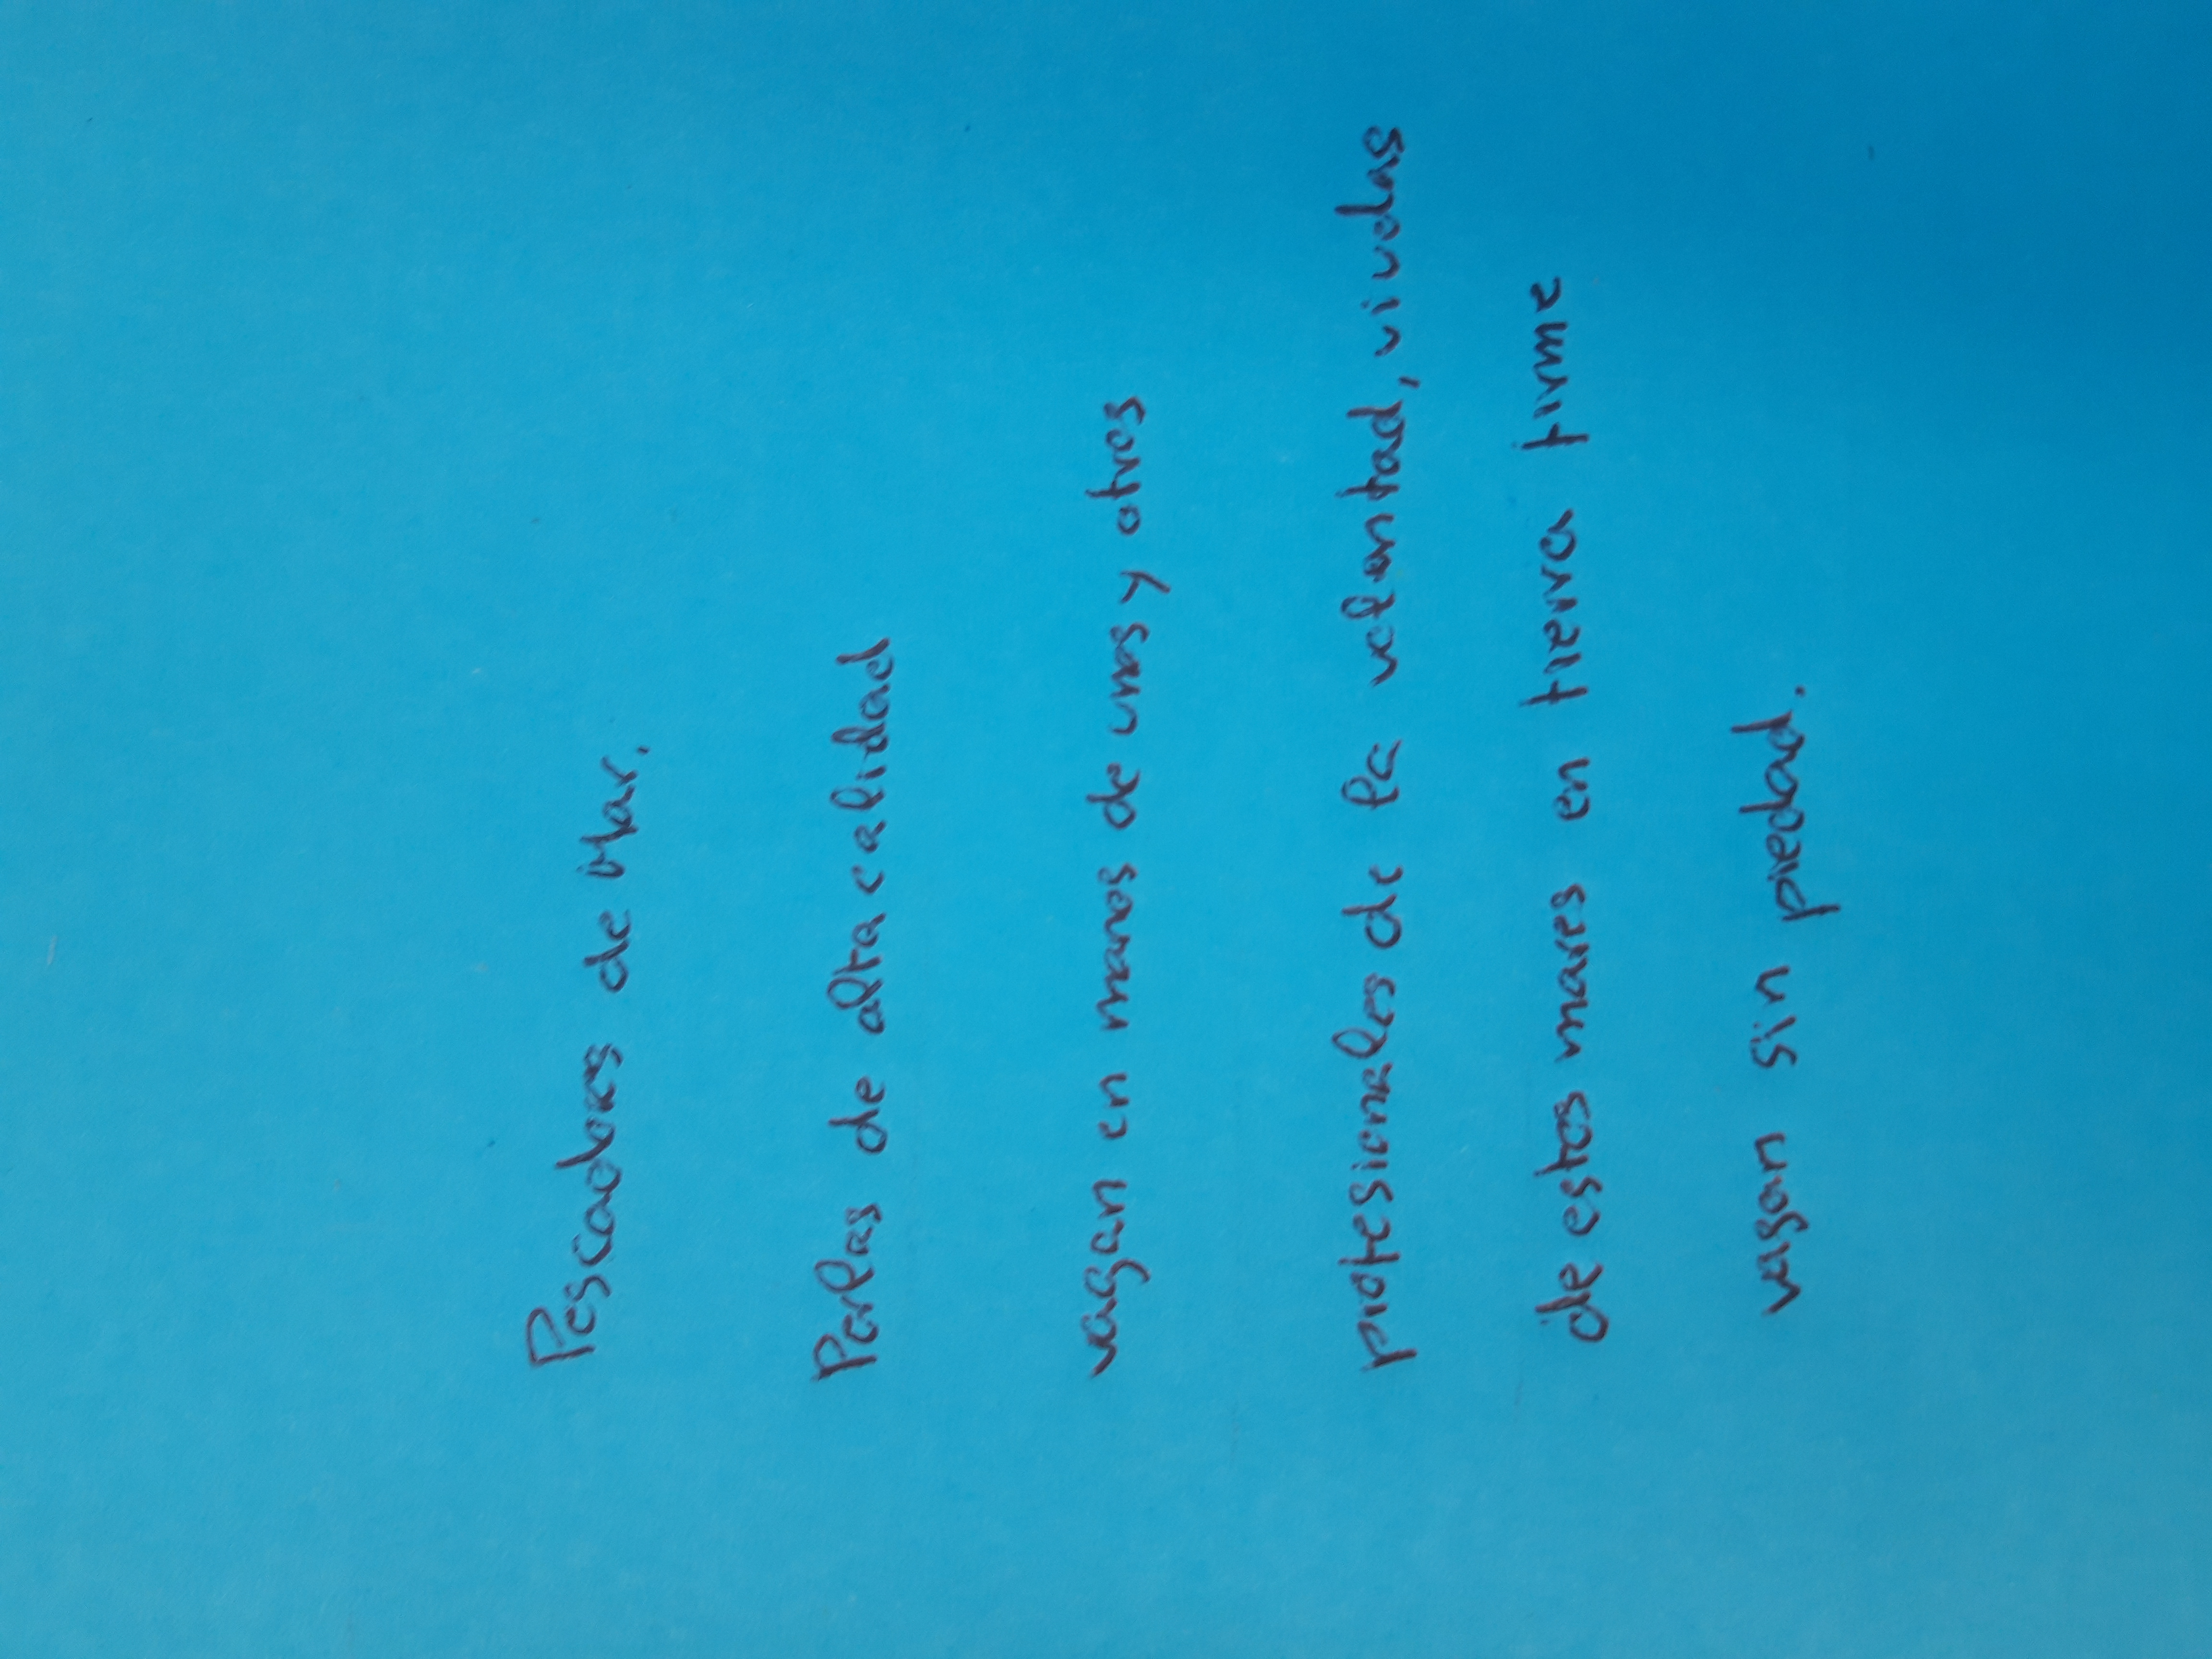 Pescadores de Mar.
Perlas de alta calidad
vagan en manos de unas y otros
profesionales de la voluntad, viudas
de estos mares en tierra firme
vagan sin piedad.